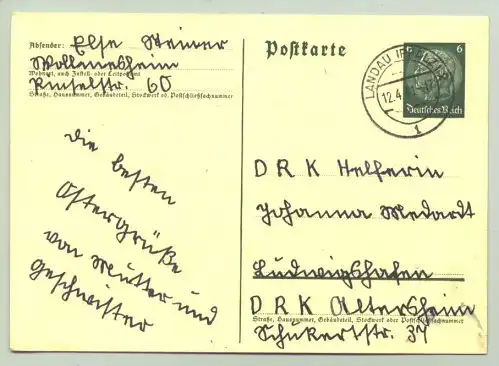 Absender: Else Steiner
Wollmesheim
Wohnort, auch Zustell- oder Leitpostamt
60
Straße, Hausnummer, Gebäudeteil, Stockwerk od. Postschließfachnummer
Die besten
Ostergrüße
von Mutter und
Geschwister
Postkarte
6 6
Deutsches Reich
LANDAU (PFALZ)
12.4.
1
DRK Helferin
Johanna Medardt
Ludwigshafen
DRK Altersheim
Straße, Hausnummer, Gebäudeteil, Stockwerk oder Postschließfachnummer
Schukertstr. 37